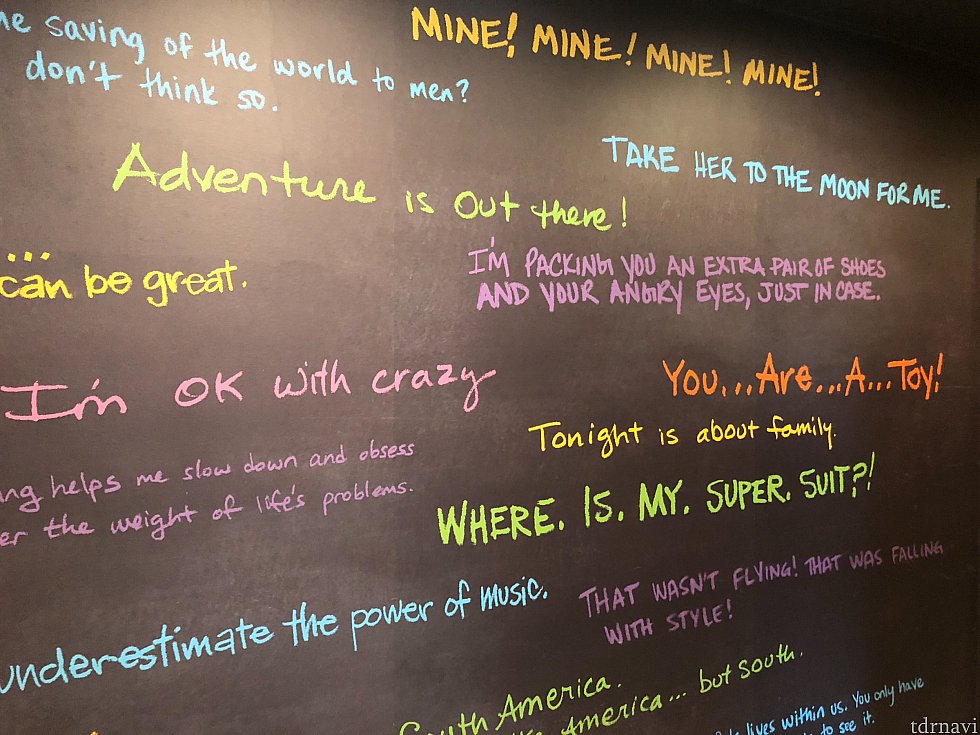 saving of the world to men?
don't think so.
MINE! MINE! MINE! MINE!
Adventure is out there!
TAKE HER TO THE MOON FOR ME.
can be great.
I'M PACKING YOU AN EXTRA PAIR OF SHOES
AND YOUR ANGRY EYES, JUST IN CASE.
I'm OK with crazy
You...Are...A...Toy!
Tonight is about family.
helps me slow down and obsess
the weight of life's problems.
WHERE. IS. MY. SUPER. SUIT?!
underestimate the power of music.
THAT WASN'T FLYING! THAT WAS FALLING
WITH STYLE!
South America.
America... but south.
lives within us. You only have
to see it.
tdrnavi